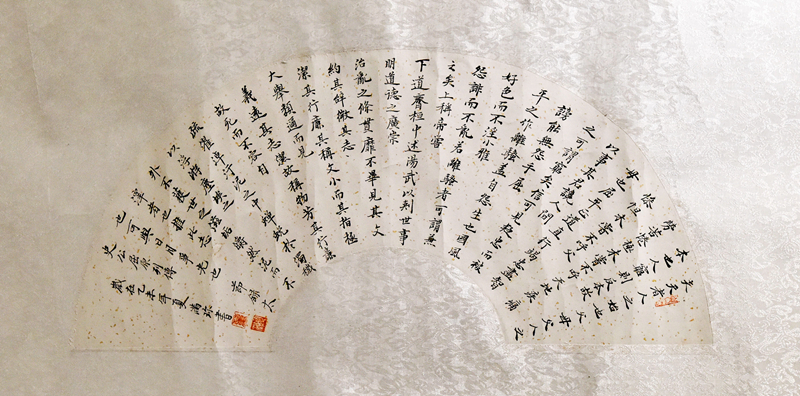 夫天者
人之始也父母人之
本也人窮則反本故
勞苦倦極未嘗不呼天也疾痛
慘怛未嘗不呼父
母也屈平正道直行竭忠盡智
以事其君讒人間
之可謂窮矣信而見疑忠而被
謗能無怨乎屈
平之作離騷蓋自怨生也國風
好色而不淫小雅
怨誹而不亂若離騷者可謂兼
之矣上稱帝嚳
下道齊桓中述湯武以刺世事
明道德之廣崇
治亂之條貫靡不畢見其文
約其辭微其志
潔其行廉其稱文小而其指極
大舉類邇而見
義遠其志潔故稱物芳其行廉
故死而不容自
疏濯淖汙泥之中蟬蛻於濁穢
以浮游塵埃之
外不獲世之滋垢皭然泥而不
滓者也推此志
也雖與日月爭光可也 太
史公屈原列傳
歲在乙未年夏 書